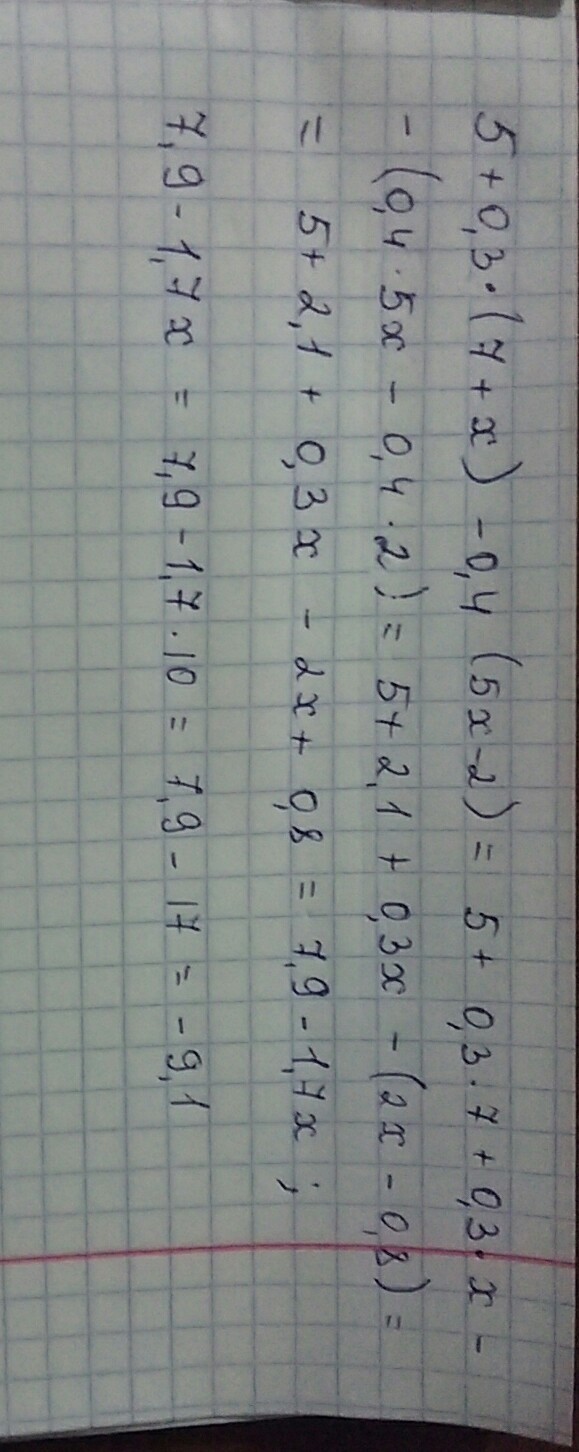 5 + 0,3 · (7 + x) - 0,4 (5x - 2) = 5 + 0,3 · 7 + 0,3 · x -
- (0,4 · 5x - 0,4 · 2) = 5 + 2,1 + 0,3x - (2x - 0,8) =
= 5 + 2,1 + 0,3x - 2x + 0,8 = 7,9 - 1,7x ;
7,9 - 1,7x = 7,9 - 1,7 · 10 = 7,9 - 17 = - 9,1